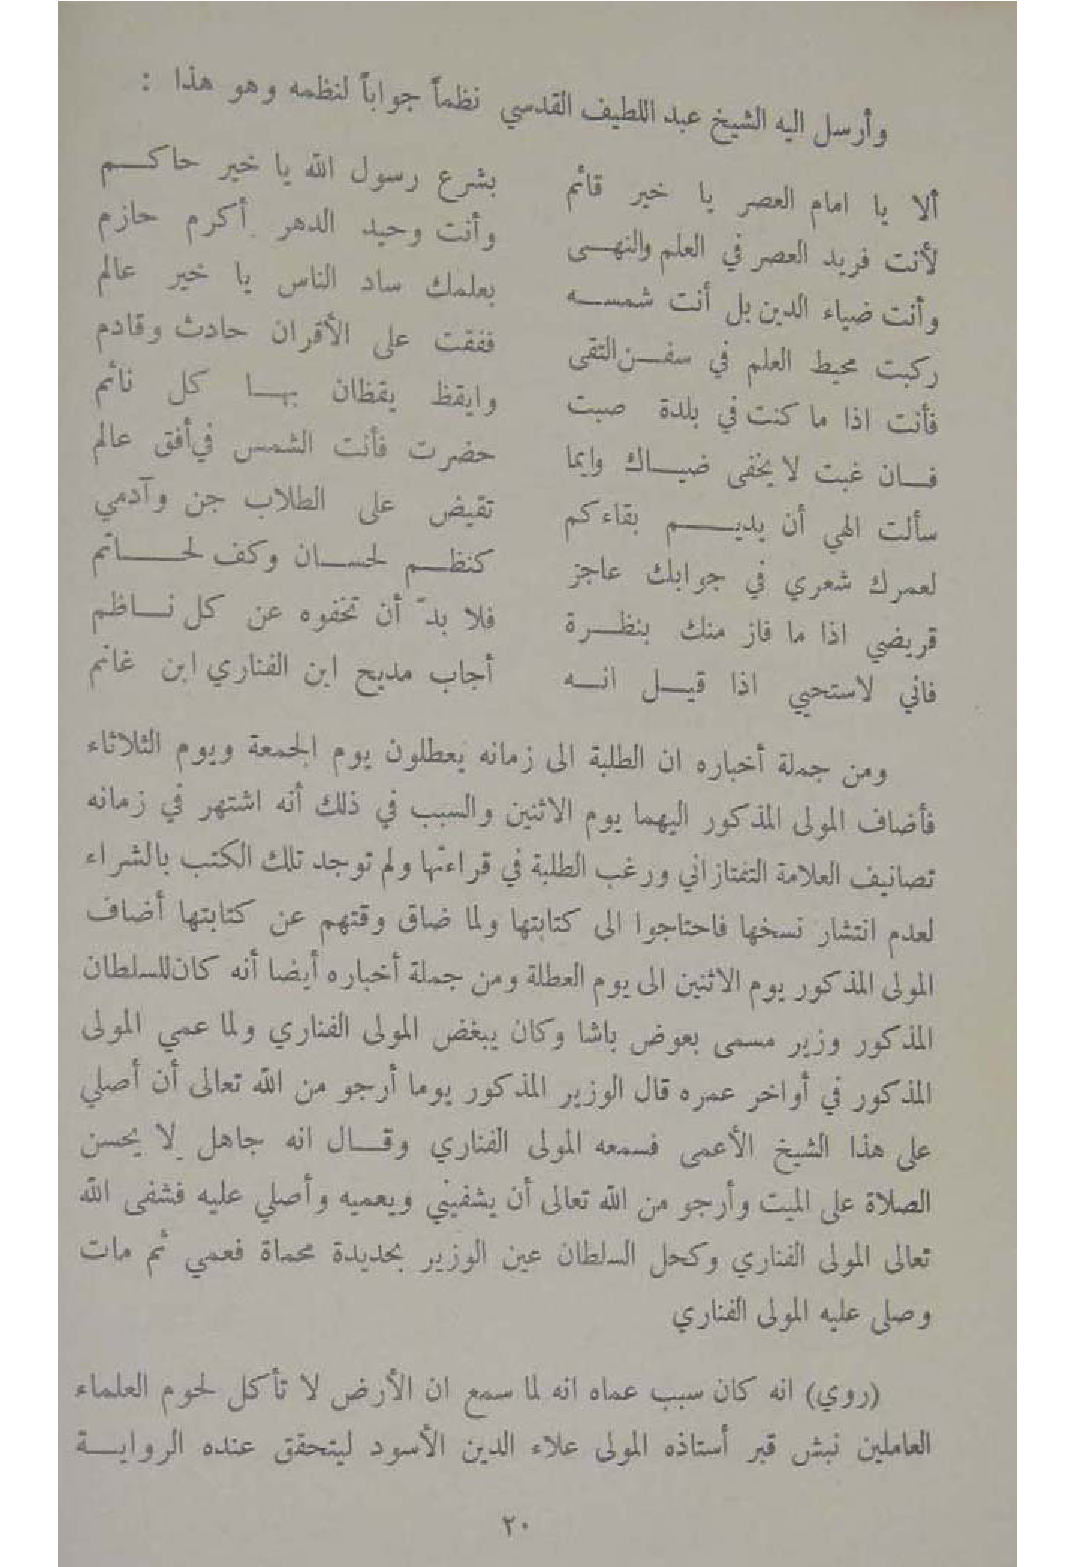 وأرسل اليه الشيخ عبد اللطيف القدسي نظماً جواباً لنظمه وهو هذا :
ألا يا امام العصر يا خير قائم بشرع رسول الله يا خير حاكم
لأنت فريد العصر في العلم والنهى وأنت وحيد الدهر أكرم حازم
وأنت ضياء الدين بل أنت شمسه بعلمك ساد الناس يا خير عالم
ركبت محيط العلم في سفن التقى ففقت على الأقران حادث وقادم
فأنت اذا ما كنت في بلدة صبت وايقظ يقظان بها كل نائم
فان غبت لا يخفى ضياك وايما حضرت فأنت الشمس في أفق عالم
سألت الهي أن يديم بقاءكم تفيض على الطلاب جن وآدمي
لعمرك شعري في جوابك عاجز كنظم لحسان وكف لحاتم
قريضي اذا ما فاز منك بنظرة فلا بدّ أن تخفوه عن كل ناظم
فاني لاستحيي اذا قيل انه أجاب مديح ابن الفناري ابن غانم
ومن جملة أخباره ان الطلبة الى زمانه يعطلون يوم الجمعة ويوم الثلاثاء
فأضاف المولى المذكور اليهما يوم الاثنين والسبب في ذلك أنه اشتهر في زمانه
تصانيف العلامة التفتازاني ورغب الطلبة في قراءتها ولم توجد تلك الكتب بالشراء
لعدم انتشار نسخها فاحتاجوا الى كتابتها ولما ضاق وقتهم عن كتابتها أضاف
المولى المذكور يوم الاثنين الى يوم العطلة ومن جملة أخباره أيضا أنه كان للسلطان
المذكور وزير مسمى بعوض باشا وكان يبغض المولى الفناري ولما عمي المولى
المذكور في أواخر عمره قال الوزير المذكور يوما أرجو من الله تعالى أن أصلي
على هذا الشيخ الأعمى فسمعه المولى الفناري وقال انه جاهل لا يحسن
الصلاة على الميت وأرجو من الله تعالى أن يشفيني ويعميه وأصلي عليه فشفى الله
تعالى المولى الفناري وكحل السلطان عين الوزير بحديدة محماة فعمي ثم مات
وصلى عليه المولى الفناري
(روي) انه كان سبب عماه انه لما سمع ان الأرض لا تأكل لحوم العلماء
العاملين نبش قبر أستاذه المولى علاء الدين الأسود ليتحقق عنده الرواية
٢٠